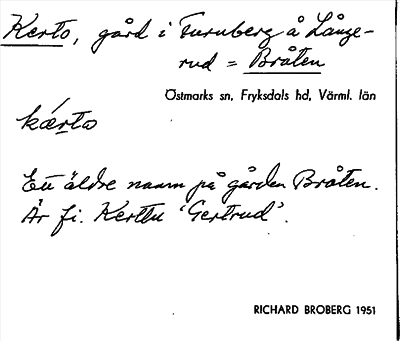 Kerto, gård i Turnberg å Långe-
rud = Bråten
Östmarks sn, Fryksdals hd, Värml. län
kærto
Ett äldre namn på gården Bråten.
Är fi. Kerttu 'Gertrud'.
RICHARD BROBERG 1951